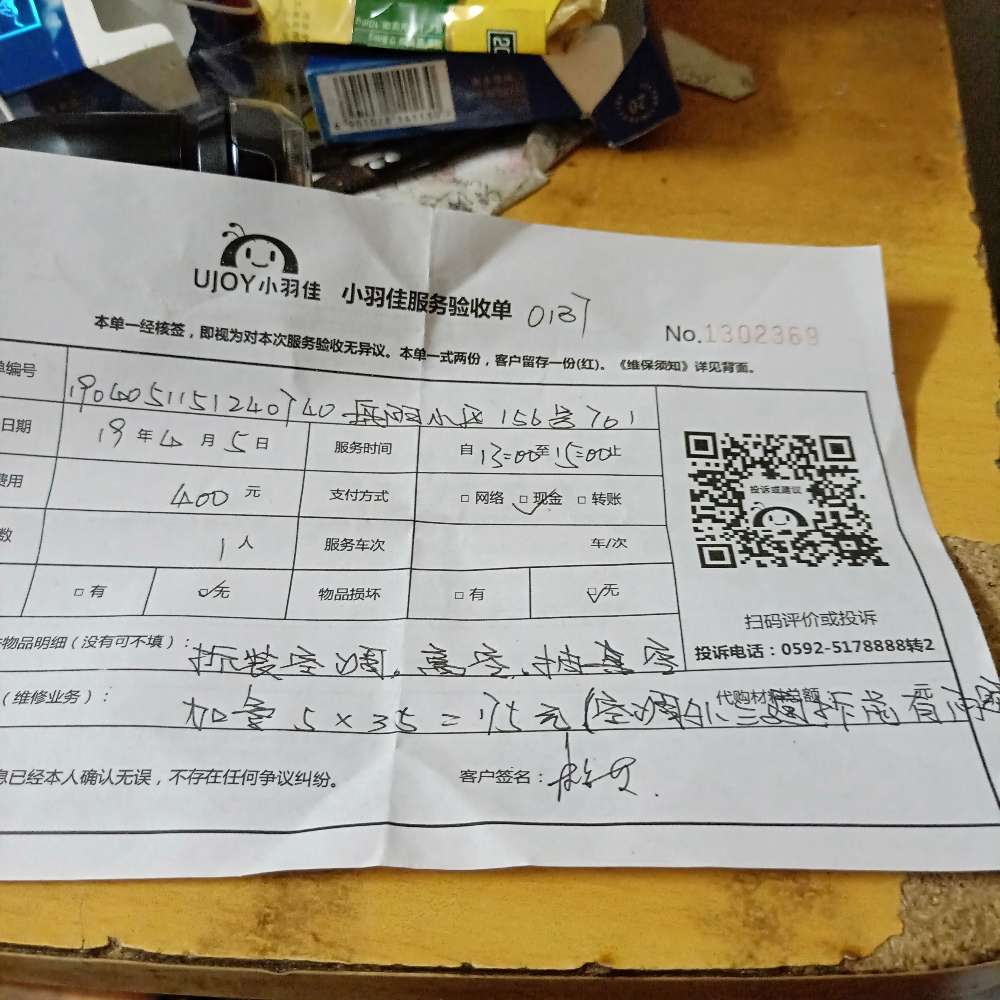 UJOY小羽佳 小羽佳服务验收单 0137
No.1302369
本单一经核签，即视为对本次服务验收无异议。本单一式两份，客户留存一份(红)。《维保须知》详见背面。
单编号 1904051151240740 小区 156号701
日期 19年4月5日 服务时间 自13:00至15:00止
费用 400元 支付方式 □网络 ☑现金 □转账
数 1人 服务车次 车/次
□有 ☑无 物品损坏 □有 ☑无
投诉或建议
扫码评价或投诉
投诉电话：0592-5178888转2
物品明细（没有可不填）： 拆装空调、高空、抽真空
（维修业务）： 加氟 5×35=175元（空调 代购材料总额
息已经本人确认无误，不存在任何争议纠纷。 客户签名：